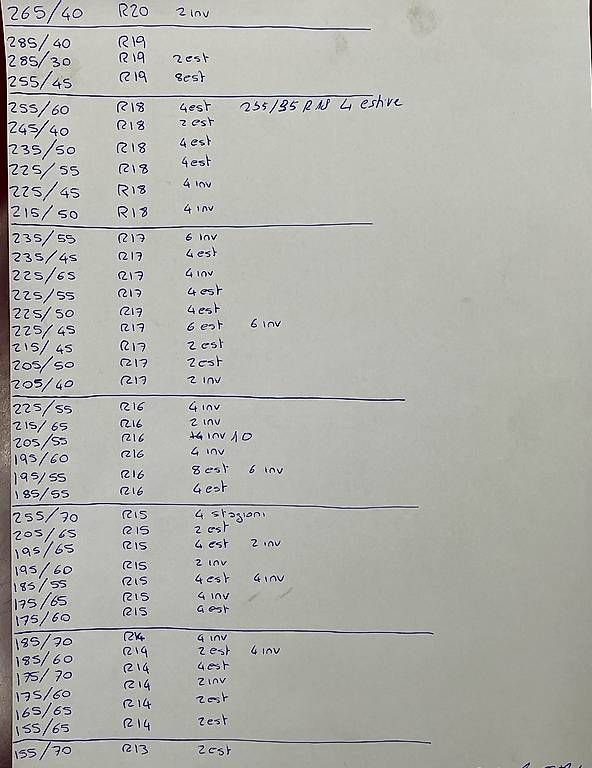 265/40 R20 2 inv
285/40 R19
285/30 R19 2est
255/45 R19 8est
255/60 R18 4est 255/35 R18 4 estive
245/40 R18 2est
235/50 R18 4est
225/55 R18 4est
225/45 R18 4 inv
215/50 R18 4 inv
235/55 R17 6 inv
235/45 R17 4est
225/65 R17 4inv
225/55 R17 4est
225/50 R17 4est
225/45 R17 6 est 6 inv
215/45 R17 2 est
205/50 R17 2est
205/40 R17 2 inv
225/55 R16 4 inv
215/65 R16 2 inv
205/55 R16 inv 10
195/60 R16 4 inv
195/55 R16 8 est 6 inv
185/55 R16 4est
255/70 R15 4 stagioni
205/65 R15 2 est
195/65 R15 4 est 2 inv
195/60 R15 2 inv
185/55 R15 4est 4inv
175/65 R15 4 inv
175/60 R15 4est
185/70 R14 4 inv
185/60 R14 2est 4 inv
175/70 R14 4est
175/60 R14 2inv
165/65 R14 2est
155/65 R14 2est
155/70 R13 2est